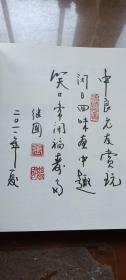 中良兄友赏玩
闲日回味画中趣
笑口常开福寿多
继国
二〇一一年夏